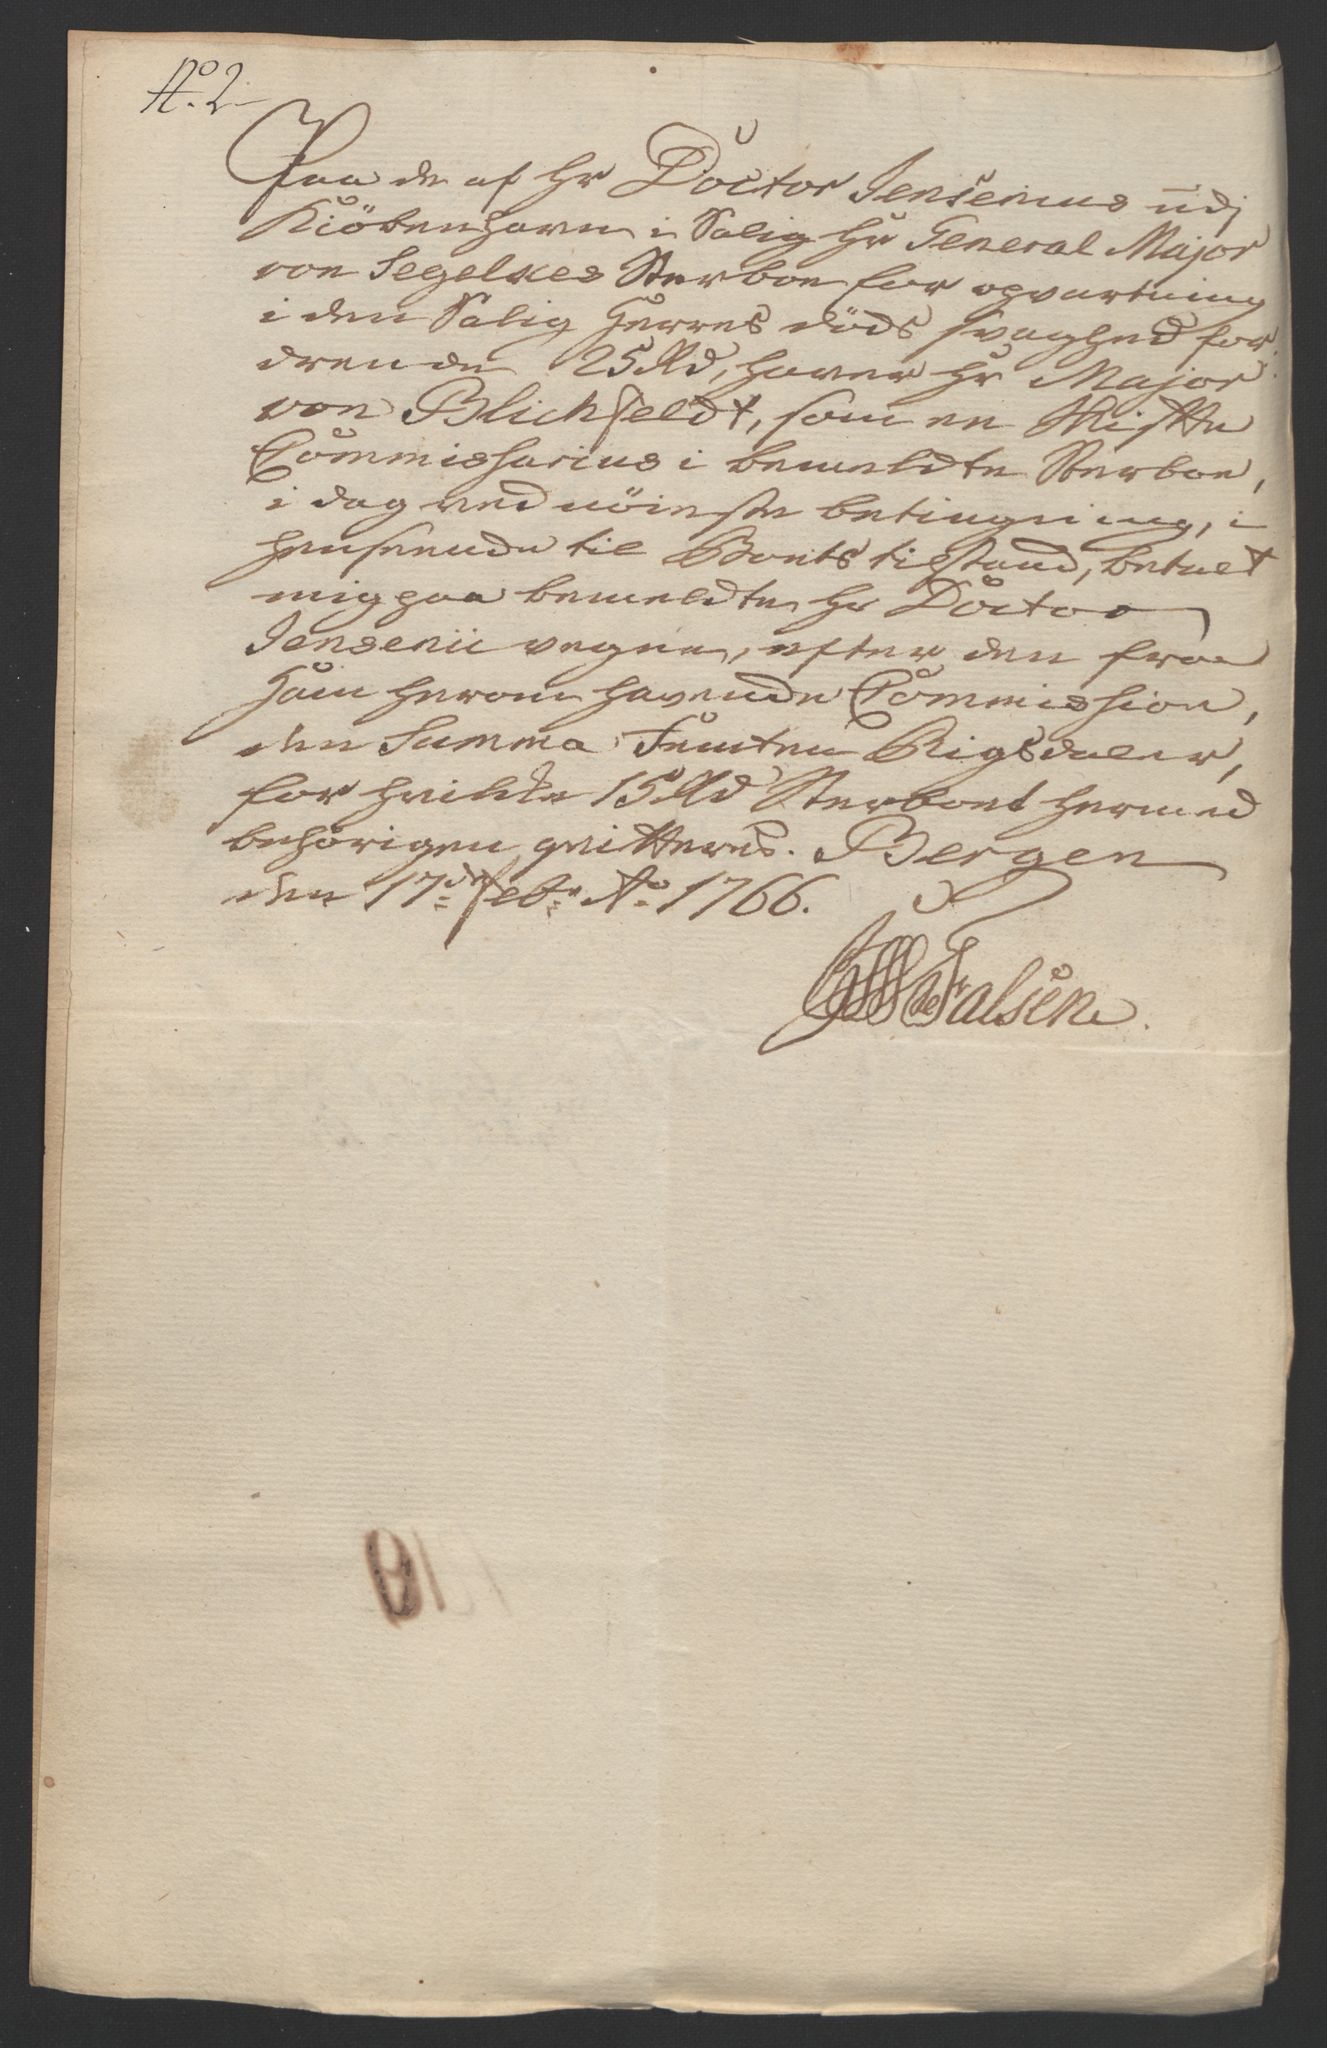 No. 2
Paa de af Hr Doctor Jensenius udj
Kiöbenhavn i Salig Hr General Major
von Segelkes Sterboe for opvartning
i den Salig Herres döds svaghed for-
drende 25 Rd, haver Hr Major
von Blichfeldt, som en Skifte
Commissarius i bemeldte Sterboe,
i dag ved nöieste betingning, i
henseende til Boets tilstand, betalt
mig paa bemeldte Hr Doctor
Jensenii vegne, efter den fra
Ham herom havende Commission,
den Summa Femten Rigsdaler,
for hvilke 15 Rd Sterboet hermed
behörigen qvitteres. Bergen
den 17de Febr. Ao 1766.
de Falsen.